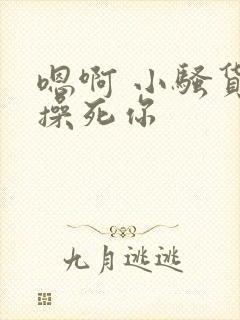 嗯啊 小骚货
操死你
九月逃逃